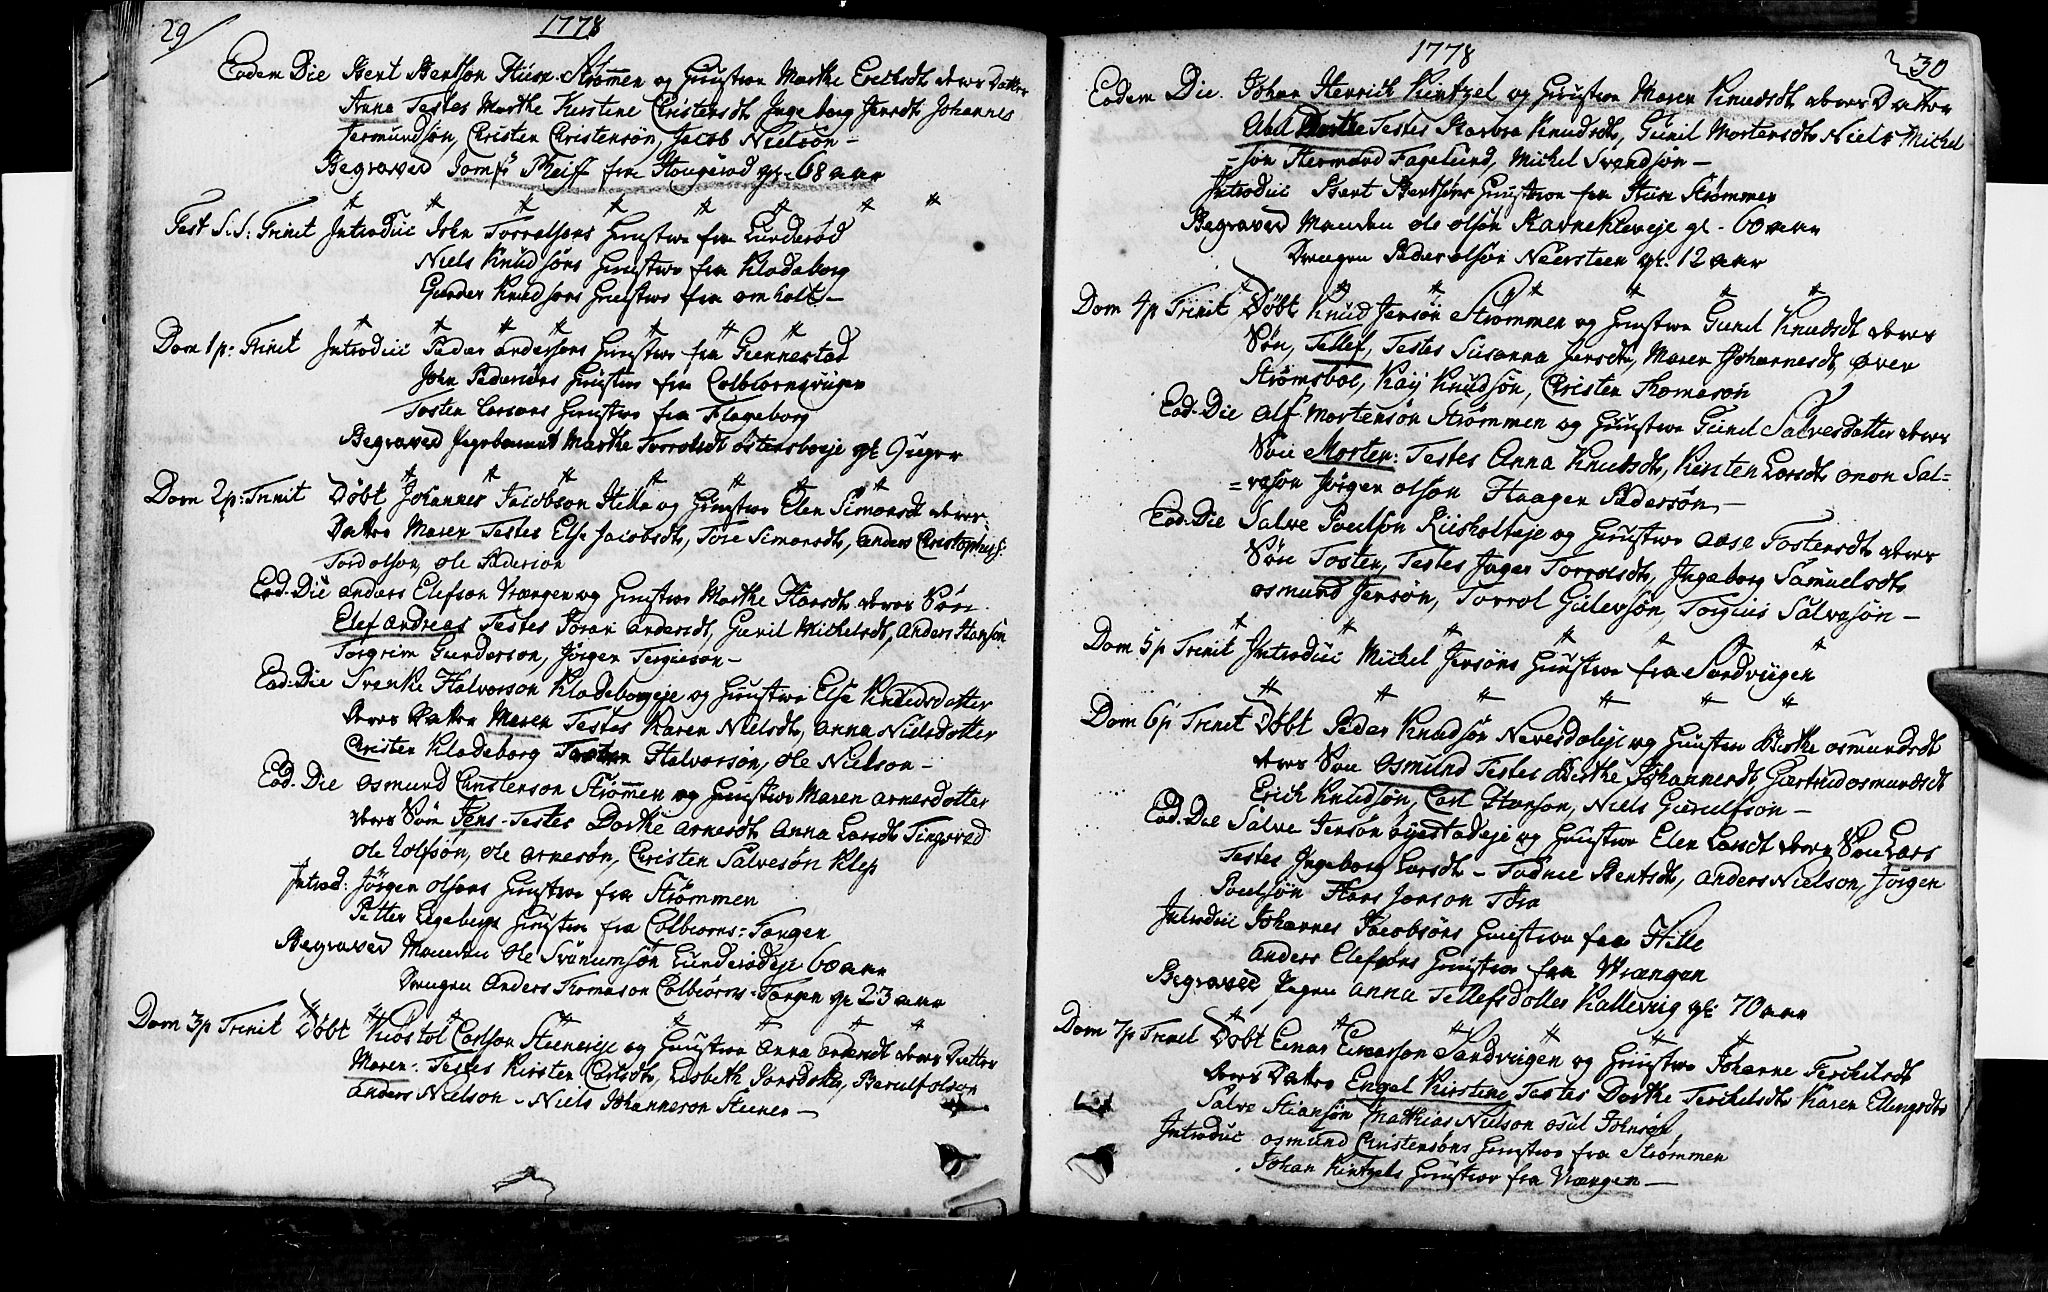 29
1778
Eodem Die Bent Bentsøn Huse-Strømmen og Hustroe Marthe Erichsdt. deres Datter
Anna Testes Marthe Kirstine Christensdt Ingeborg Jensdt Johannes
Jermundsøn, Christen Christensøn, Jacob Nielsøn –
Begraved Jomfr Pheiff fra Hougerød gl. 68 aar
Fest S.S. Trinit Introduc John Torrelsøns Hustroe fra Lunderød
Niels Knudsøns Hustroe fra Kladeborg
Gunder Knudsøns Hustroe fra omholt –
Dom 1 p: Trinit Introduc Peder andersøns Hustroe fra Gunnestad
John Pedersøns Hustroe fra Colbiornsvigen
Tosten Larsøns Hustroe fra Flageborg
Begraved Marthe Torrolsdt Østensboeje gl. 9 uger
Dom 2 p: Trinit Døbt Johannes Jacobsøn Hille og Hustroe Elen Simonsdt deres
Datter Maren Testes Else Jacobsdt, Tore Simonsdt, anders Christophers:
Tord olsøn, ole Pedersøn
Eod. Die anders Elefsøn Vrængen og Hustroe Marthe Hansdt. deres Søn
Elef andreas Testes Joran andersdt, Gunil Michelsdt, Anders Hansøn
Torgrim Gundersøn, Jørgen Tergiesøn –
Eod: Die Svenke Halvorsøn Kladeborgeje og Hustroe Else Knudsdatter
deres Datter Maren Testes Karen Nielsdt, anna Nielsdatter
Christen Kladeborg Tosten Halvorsøn, ole Nielsøn –
Eod. Die osmund Christensøn Strømmen og Hustroe Maren arnesdatter
deres Søn Jens – Testes Dorthe arnesdt anna Larsdt Tingsved
ole Rolfsøn, ole arnesøn, Christen Salvesøn Klep
Introd: Jørgen olsøns Hustroe fra Strømmen
Petter Legebergs Hustroe fra Colbiorns-Tangen
Begraved Manden ole Svenumsøn Lunderødeje 60 aar
Drengen Anders Thomasøn Colbiorns-Tangen gl. 23 aar
Dom 3 p Trinit Døbt Kiøstol Carlsøn Stenereje og Hustroe Anna andersdt deres Datter
Maren: Testes Kirsten Carlsdt, Lisbeth Jonsdatter, Berulf olsøn
anders Nielsøn – Niels Johannesøn Steener –
1778
30
Eodem Die. Johan Henrich Kintzel og Hustroe Maren Knudsdt deres Datter
Abel Dorthe Testes Barbra Knudsdt, Gunil Mortensdt Niels Michel
= søn Hermand Fagelund, Michel Svendsøn –
Introduc Bent Bentsøns Hustroe fra Huse Strømmen
Begraved Manden ole olsøn Ravnekleveje gl. 60 aar
Drengen Peder olsøn Neersteen gl: 12 aar
Dom 4 p Trinit Døbt Knud Jensøn Strømmen og Hustroe Gunil Knudsdt deres
Søn, Tellef, Testes Susanna Jensdt, Maren Johannesdt, Øver
Strømsboe, Kay Knudsøn, Christen Thomasøn
Eod. Die Alf Mortensøn Strømmen og Hustroe Gunil Salvesdatter deres
Søn Morten: Testes Anna Knudsdt, Kirsten Larsdt, onon Sal-
= vesøn Jørgen olsøn Haagen Pedersøn –
Eod. Die Salve Poulsøn Riisholteje og Hustroe aase Tostensdt deres
Søn Tosten, Testes Inger Torrolsdt, Ingeborg Samuelsdt
osmund Jensøn, Torrol Gulevsøn, Torgius Salvesøn –
Dom 5 p Trinit Introduc Michel Jensøns Hustroe fra Sandvigen
Dom 6 p Trinit Døbt Peder Knudsøn Nevesdaleje og Hustroe Birthe osmundsdt
deres Søn Osmund Testes Birthe Johannesdt Giertrud osmundsdt
Erich Knudsøn, Carl Hansøn, Niels Gunulfsøn –
Eod. Die Salve Jensøn øyestadeje og Hustroe Elen Larsdt deres Søn Lars
Testes Ingeborg Larsdt – Tadnie Bentsdt, anders Nielsøn, Jørgen
Poulsøn Hans Jensøn Tøra
Introduc Johannes Jacobsøns Hustroe fra Hille
anders Elefsøns Hustroe fra Vrængen
Begraved Pigen anna Tellefsdatter Kallevig gl: 70 aar
Dom 7 p Trinit Døbt Einar Einersøn Sandvigen og Hustroe Johanne Terchelsdt
deres Datter Engel Kirstine, Testes Dorthe Terchelsdt Karen Ellingsdt
Salve Stiansøn Mathias Nielsøn osul Johnsøn
Introduc osmund Christensøns Hustroe fra Strømmen
Johan Kintzels Hustroe fra Vrængen –